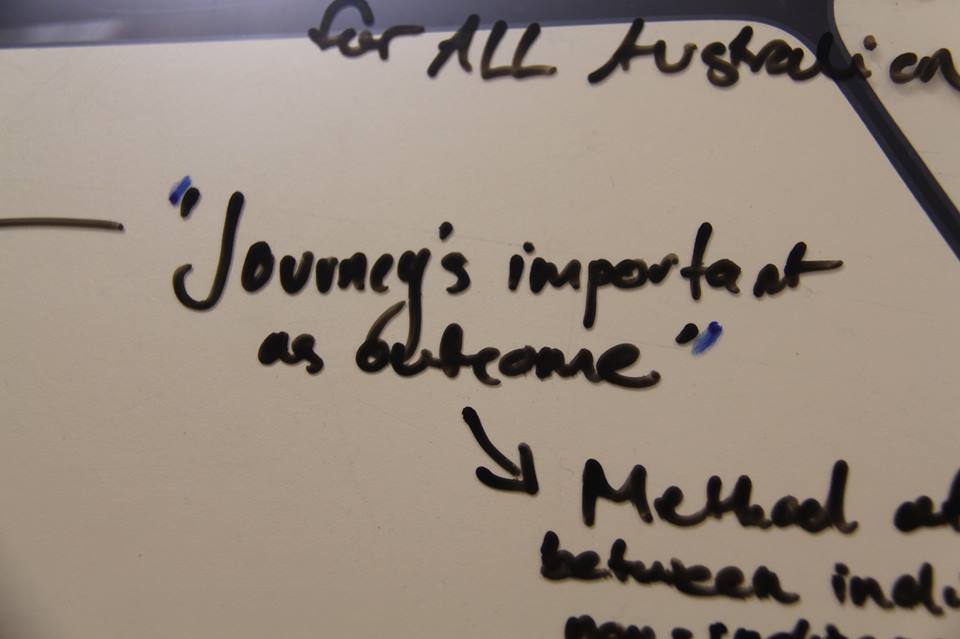 for ALL Australian
"Journey's important
as outcome"
Method
between